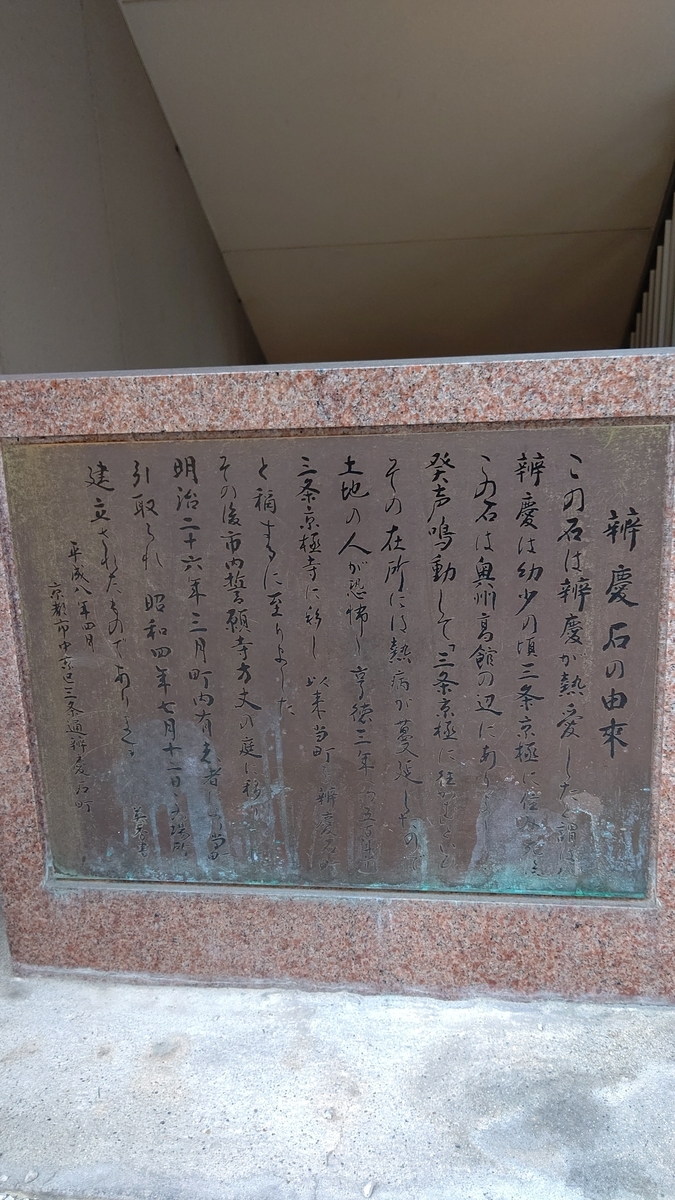 辨慶石の由来
この石は辨慶が熱愛したと謂はれ
辨慶は幼少の頃三条京極に住み
この石は奥州高館の辺にありました
発声鳴動して「三条京極に往かむ」といい
その在所には熱病が蔓延したので
土地の人が恐怖し享徳三年
三条京極寺に移し以来当町を辨慶石町
と稱するに至りました
その後市内誓願寺方丈の庭に移
明治二十六年三月町内有志者
引取られ昭和四年七月十二日
建立されたものであります
平成八年四月
京都市中京区三条通辨慶石町